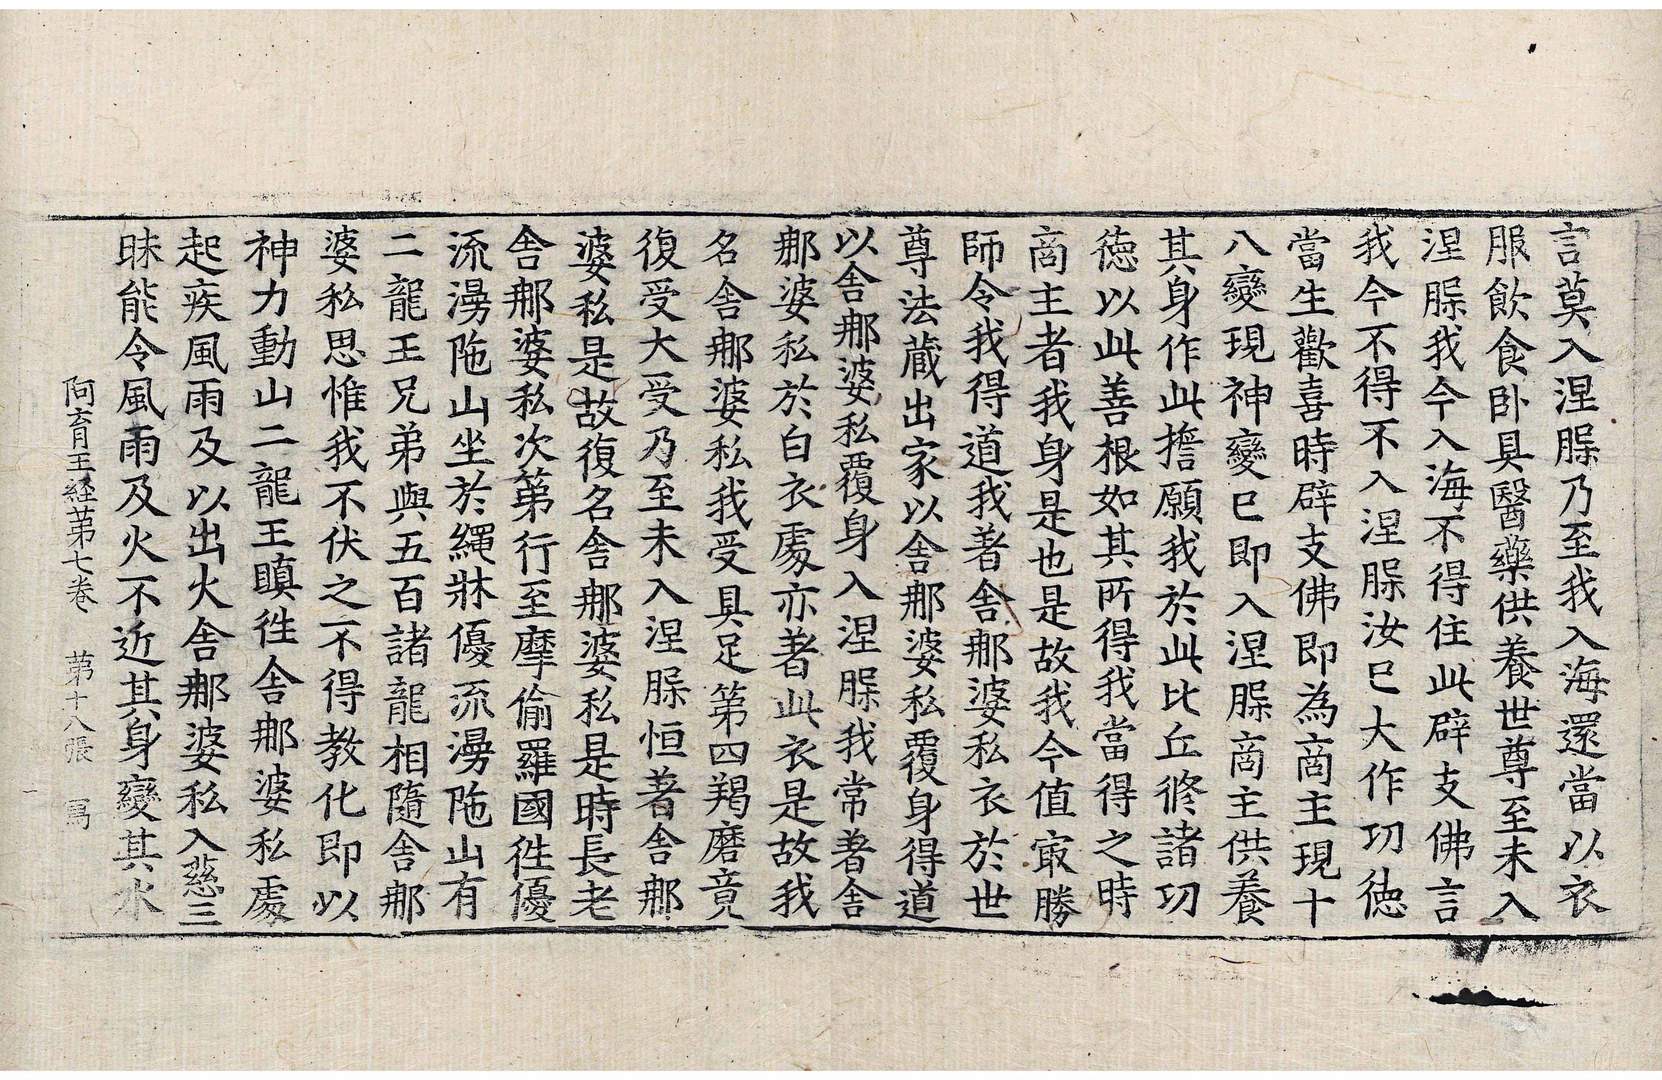 言莫入涅槃乃至我入海還當以衣
服飲食卧具醫藥供養世尊至未入
涅槃我今入海不得住此辟支佛言
我今不得不入涅槃汝已大作功徳
當生歡喜時辟支佛即為商主現十
八變現神變已即入涅槃商主供養
其身作此擔願我於此比丘脩諸功
徳以此善根如其所得我當得之時
商主者我身是也是故我今值㝡勝
師令我得道我著舎那婆私衣於世
尊法蔵出家以舎那婆私覆身得道
以舎那婆私覆身入涅槃我常著舎
那婆私於白衣處亦著此衣是故我
名舎那婆私我受具足第四羯磨竟
復受大受乃至未入涅槃恒著舎那
婆私是故復名舎那婆私是時長老
舎那婆私次第行至摩偷羅國徃優
流漫陁山坐於繩牀優流漫陁山有
二龍王兄弟與五百諸龍相隨舎那
婆私思惟我不伏之不得教化即以
神力動山二龍王瞋徃舎那婆私處
起疾風雨及以出火舎那婆私入慈三
昧能令風雨及火不近其身變其水
阿育王経第七巻　第十八張　冩